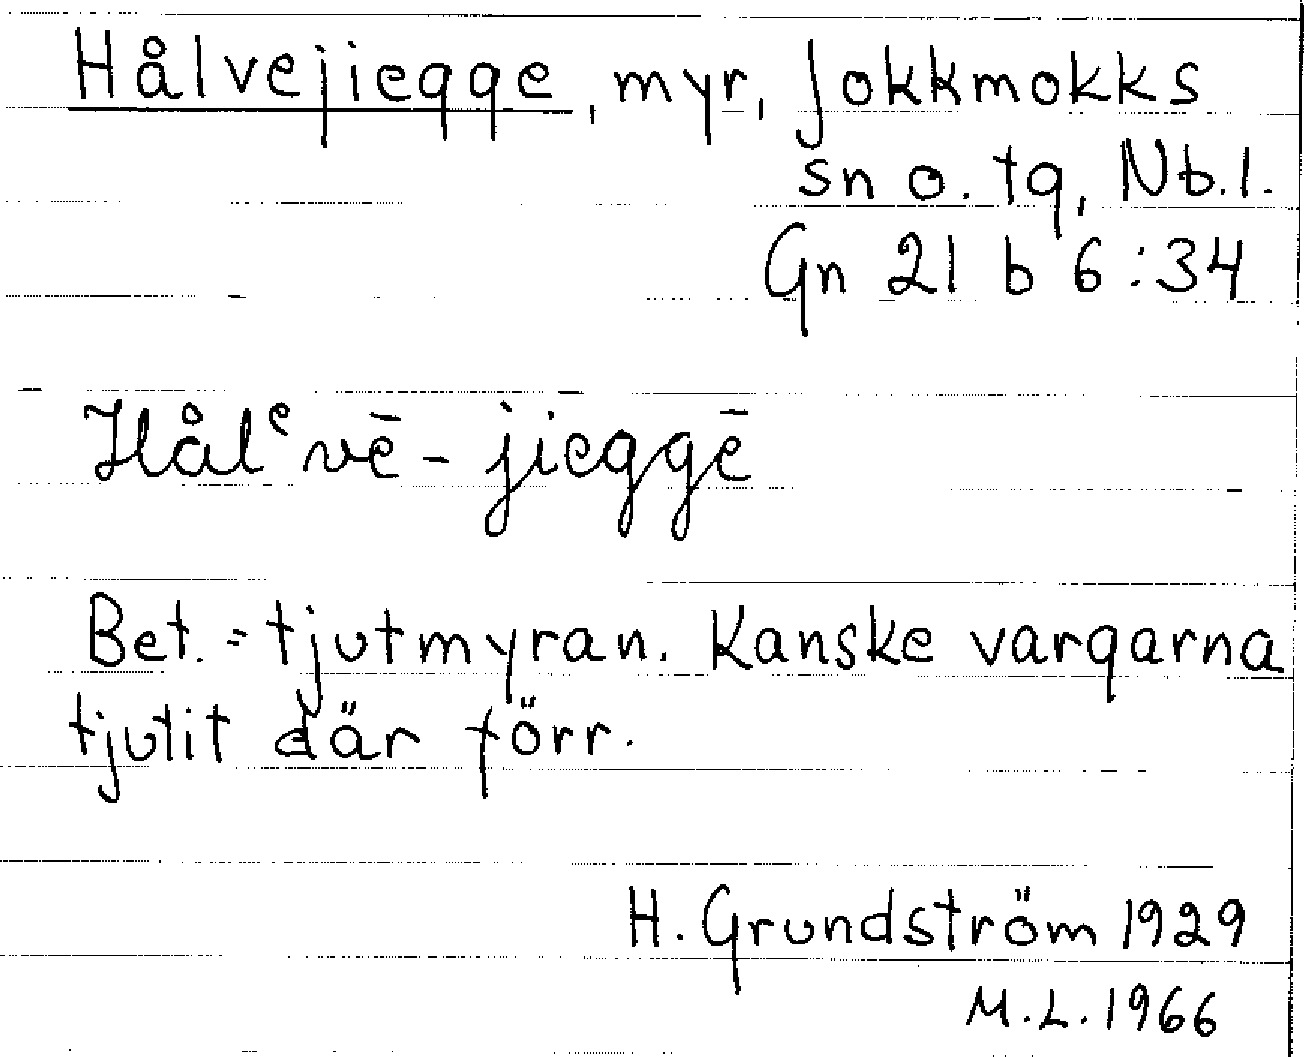 Hålvejiegge, myr, Jokkmokks
sn o. tg, Nb.l.
Gn 21 b 6:34
Hålᵉvē-jieggē
Bet. = tjutmyran. Kanske vargarna
tjutit där förr.
H. Grundström 1929
M.L. 1966